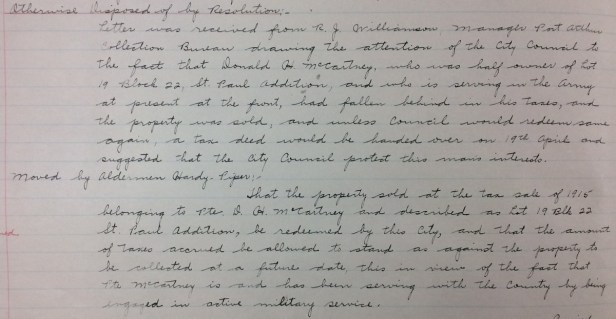 Otherwise Disposed of by Resolution:-
Letter was received from R. J. Williamson, Manager Port Arthur
Collection Bureau drawing the attention of the City Council to
the fact that Donald H. McCartney, who was half owner of Lot
19 Block 22, St. Paul Addition, and who is serving in the Army
at present at the front, had fallen behind in his taxes, and
the property was sold, and unless Council would redeem same
again, a tax deed would be handed over on 19th April and
suggested that the City Council protect this mans interests.
Moved by Aldermen Hardy-Piper:-
That the property sold at the tax sale of 1915
belonging to Pte. D. H. McCartney and described as Lot 19 Blk 22
St. Paul Addition, be redeemed by this City, and that the amount
of taxes accrued be allowed to stand as against the property to
be collected at a future date, this in view of the fact that
Pte McCartney is and has been serving with the Country by being
engaged in active military service.